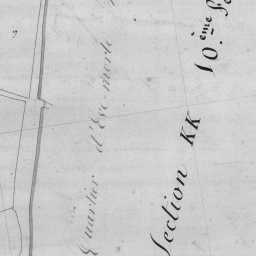 Quartier d'Evemorte
Section KK
10.ème